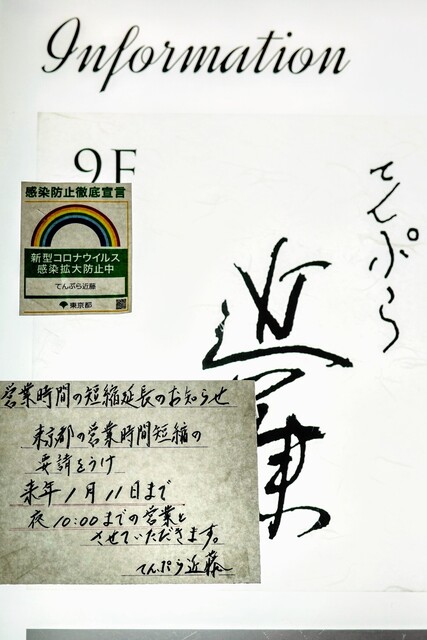 Information
9F
てんぷら
近藤
感染防止徹底宣言
新型コロナウイルス
感染拡大防止中
てんぷら近藤
東京都
営業時間の短縮延長のお知らせ
東京都の営業時間短縮の
要請をうけ
来年1月11日まで
夜10:00までの営業と
させていただきます。
てんぷら近藤